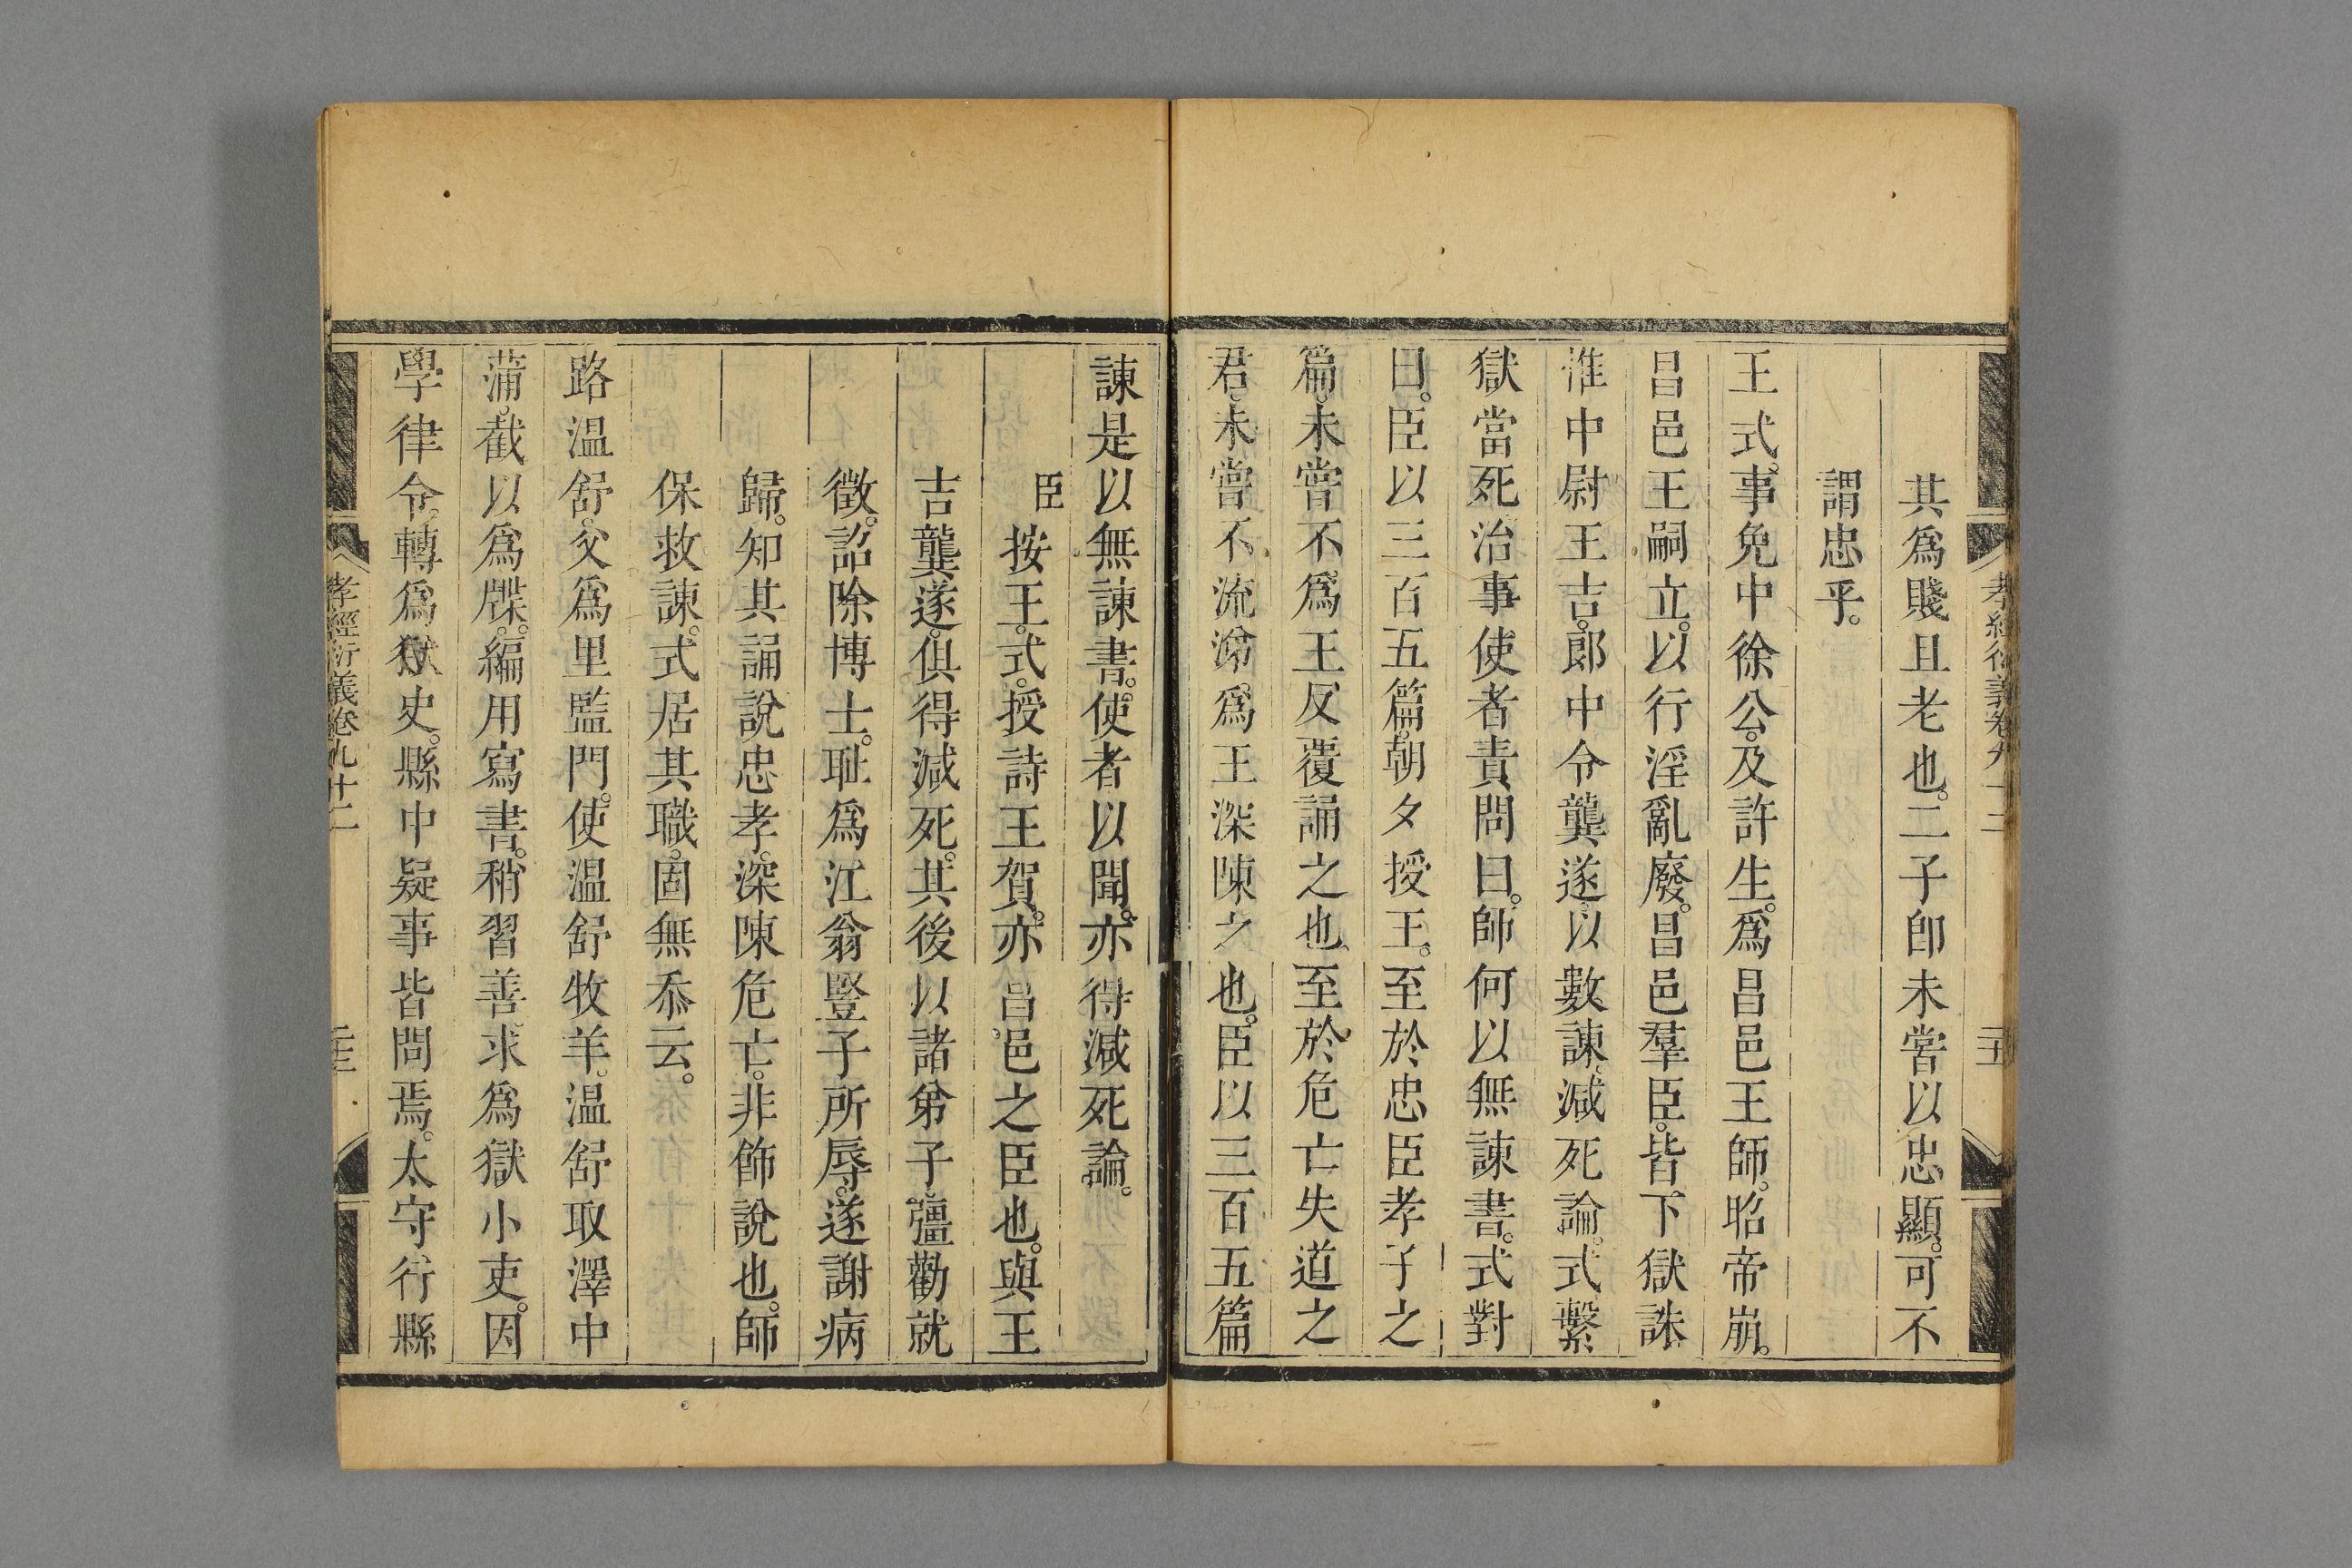 其爲賤且老也。二子卽未嘗以忠顯。可不
謂忠乎。
王式。事免中徐公。及許生。爲昌邑王師。昭帝崩。
昌邑王嗣立。以行淫亂廢。昌邑羣臣。皆下獄誅
惟中尉王吉。郞中令龔遂。以數諫。減死論。式繫
獄當死治事使者責問曰。師何以無諫書。式對
曰。臣以三百五篇。朝夕授王。至於忠臣孝子之
篇。未嘗不爲王反覆誦之也。至於危亡失道之
君。未嘗不流涕。爲王深陳之也。臣以三百五篇
諫是以無諫書。使者以聞。亦得減死論。
臣按王。式。授詩王賀。亦昌邑之臣也。與王
吉龔遂。俱得減死。其後以諸弟子彊勸就
徵。詔除博士。耻爲江翁豎子所辱。遂謝病
歸。知其誦說忠孝。深陳危亡。非飾說也。師
保救諫。式居其職。固無忝云。
路温舒。父爲里監門。使温舒牧羊。温舒取澤中
蒲。截以爲牒。編用寫書。稍習善。求爲獄小吏。因
學律令。轉爲獄史。縣中疑事皆問焉。太守行縣
孝經衍義卷九十二